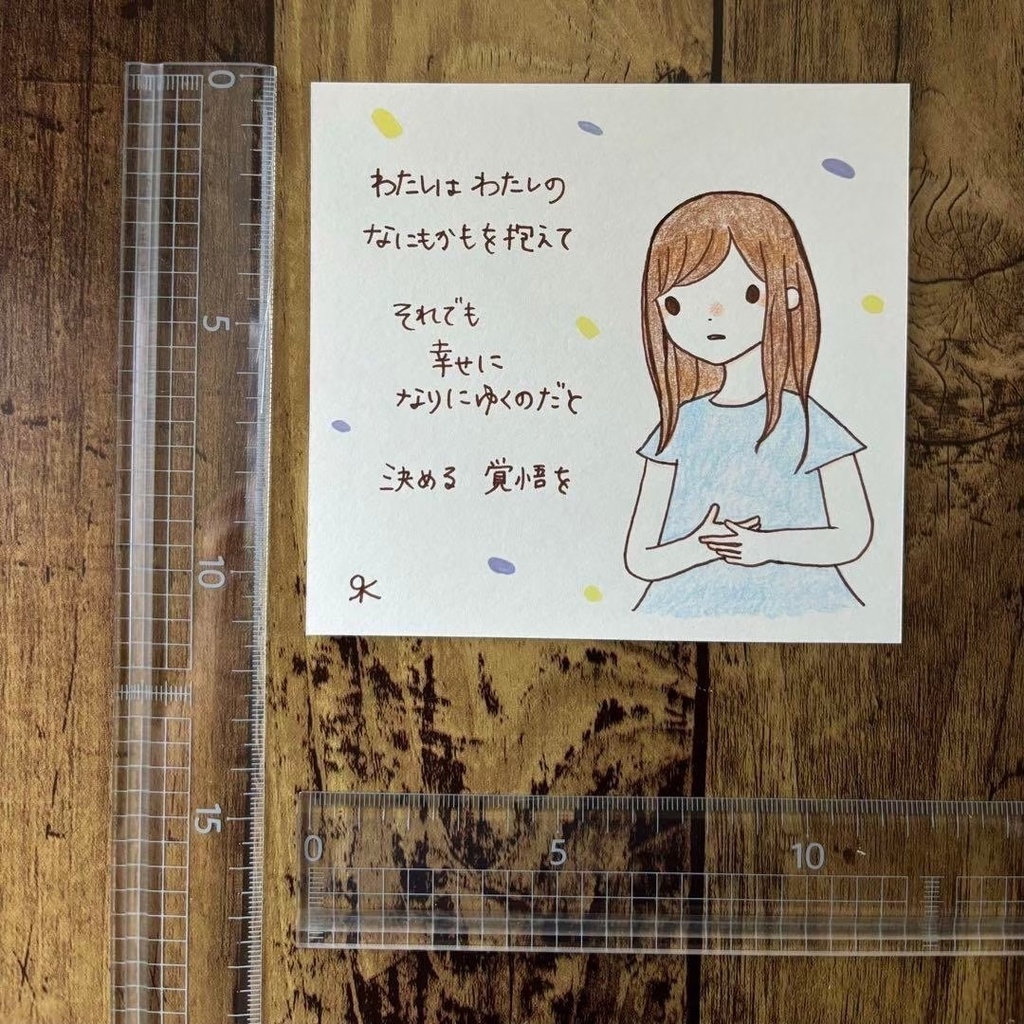 わたしは わたしの
なにもかもを抱えて
それでも
幸せに
なりにゆくのだと
決める 覚悟を
0
5
10
15
0
5
10